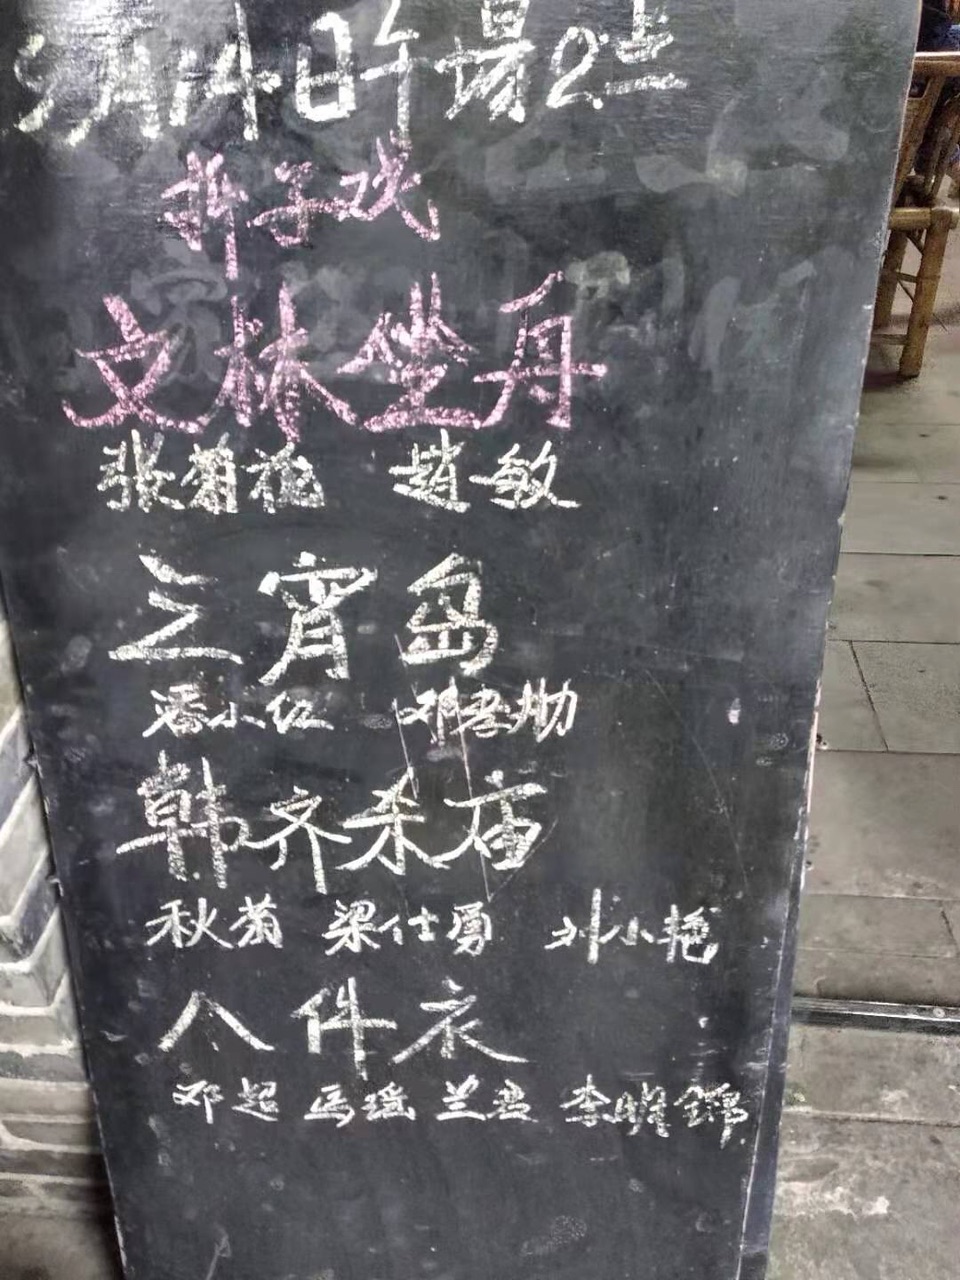 3月14日午場2点
折子戏
文林坐舟
张菊花 趙敏
三宵岛
潘小红 邓孝勋
韩齐杀庙
秋菊 梁仕勇 刘小艳
八件衣
邓超 马瑶 兰君 李明錦